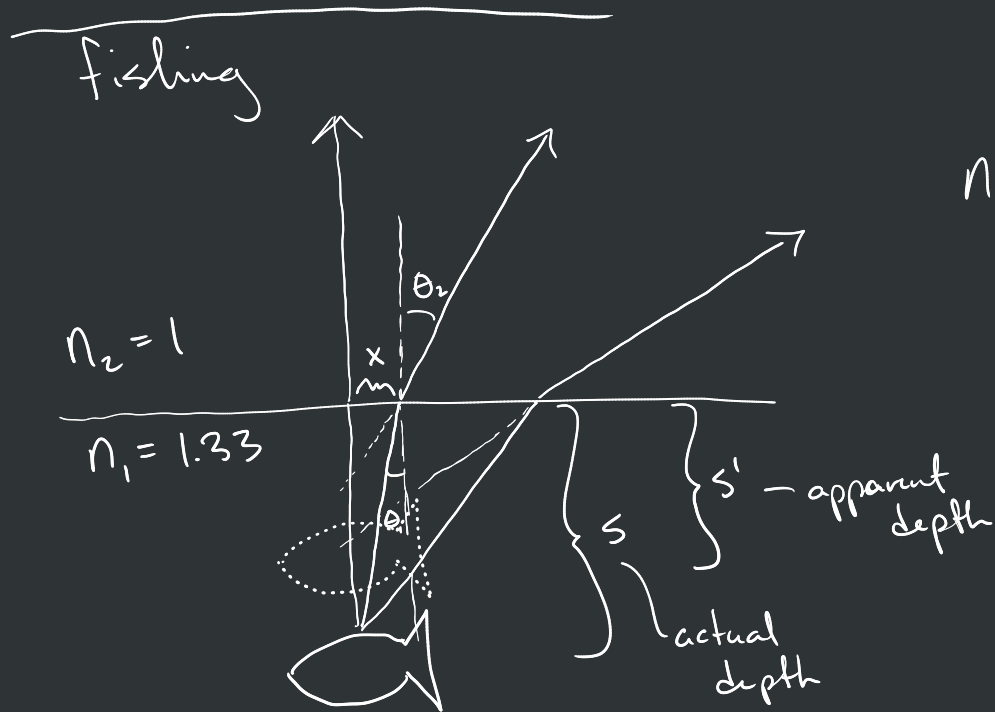 fishing
n
θ₂
n₂ = 1
x
n₁ = 1.33
θ₁
s' — apparent
depth
s
actual
depth